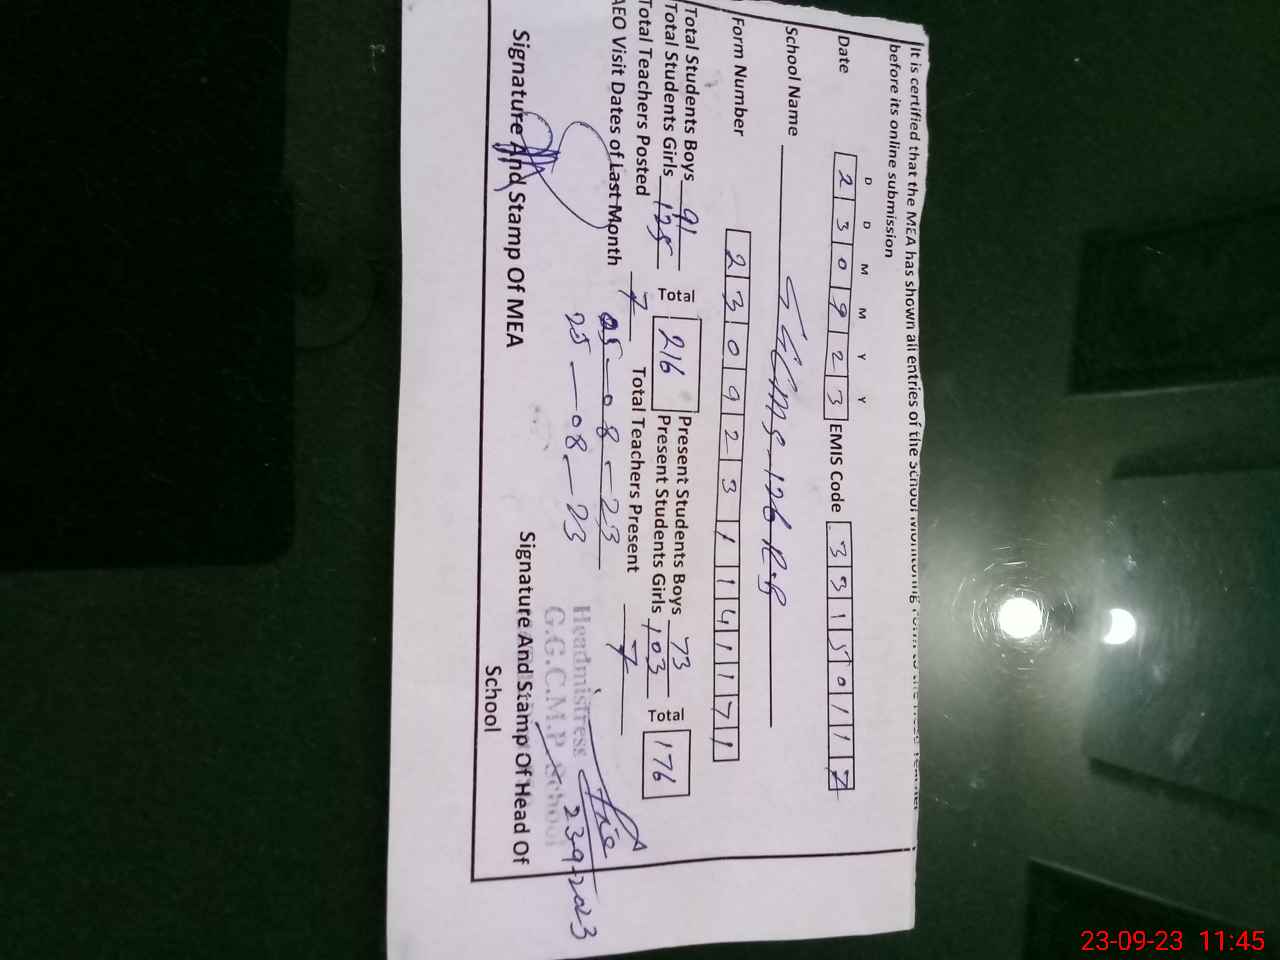 It is certified that the MEA has shown all entries of the School Monitoring Form to the Head Teacher
before its online submission
D D M M Y Y
Date 2 3 0 9 2 3 EMIS Code 3 3 1 5 0 1 1 7
School Name GGCMS-126 R-B
Form Number 2 3 0 9 2 3 1 1 4 1 1 7 1
Total Students Boys 91 Total 216 Present Students Boys 73 Total 176
Total Students Girls 125 Present Students Girls 103
Total Teachers Posted 7 Total Teachers Present 7
AEO Visit Dates of Last Month 05-08-23
25-08-23
Headmistress
G.G.C.M.P School
23-9-2023
Signature And Stamp Of MEA Signature And Stamp Of Head Of
School
23-09-23 11:45